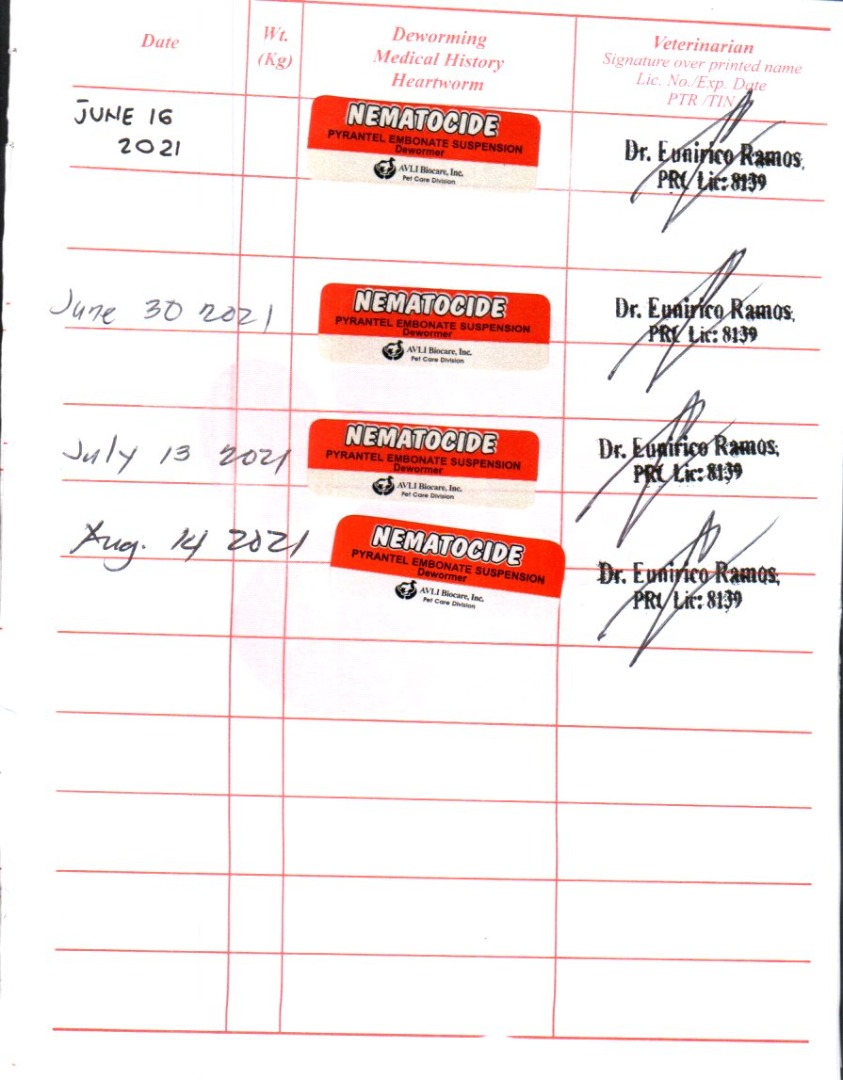 Date
Wt.
(Kg)
Deworming
Medical History
Heartworm
Veterinarian
Signature over printed name
Lic. No./Exp. Date
PTR /TIN
JUNE 16
2021
NEMATOCIDE
PYRANTEL EMBONATE SUSPENSION
Dewormer
AVLI Biocare, Inc.
Pet Care Division
Dr. Eunirico Ramos,
PRC Lic: 8139
June 30 2021
NEMATOCIDE
PYRANTEL EMBONATE SUSPENSION
Dewormer
AVLI Biocare, Inc.
Pet Care Division
Dr. Eunirico Ramos,
PRC Lic: 8139
July 13 2021
NEMATOCIDE
PYRANTEL EMBONATE SUSPENSION
Dewormer
AVLI Biocare, Inc.
Pet Care Division
Dr. Eunirico Ramos,
PRC Lic: 8139
Aug. 14 2021
NEMATOCIDE
PYRANTEL EMBONATE SUSPENSION
Dewormer
AVLI Biocare, Inc.
Pet Care Division
Dr. Eunirico Ramos,
PRC Lic: 8139